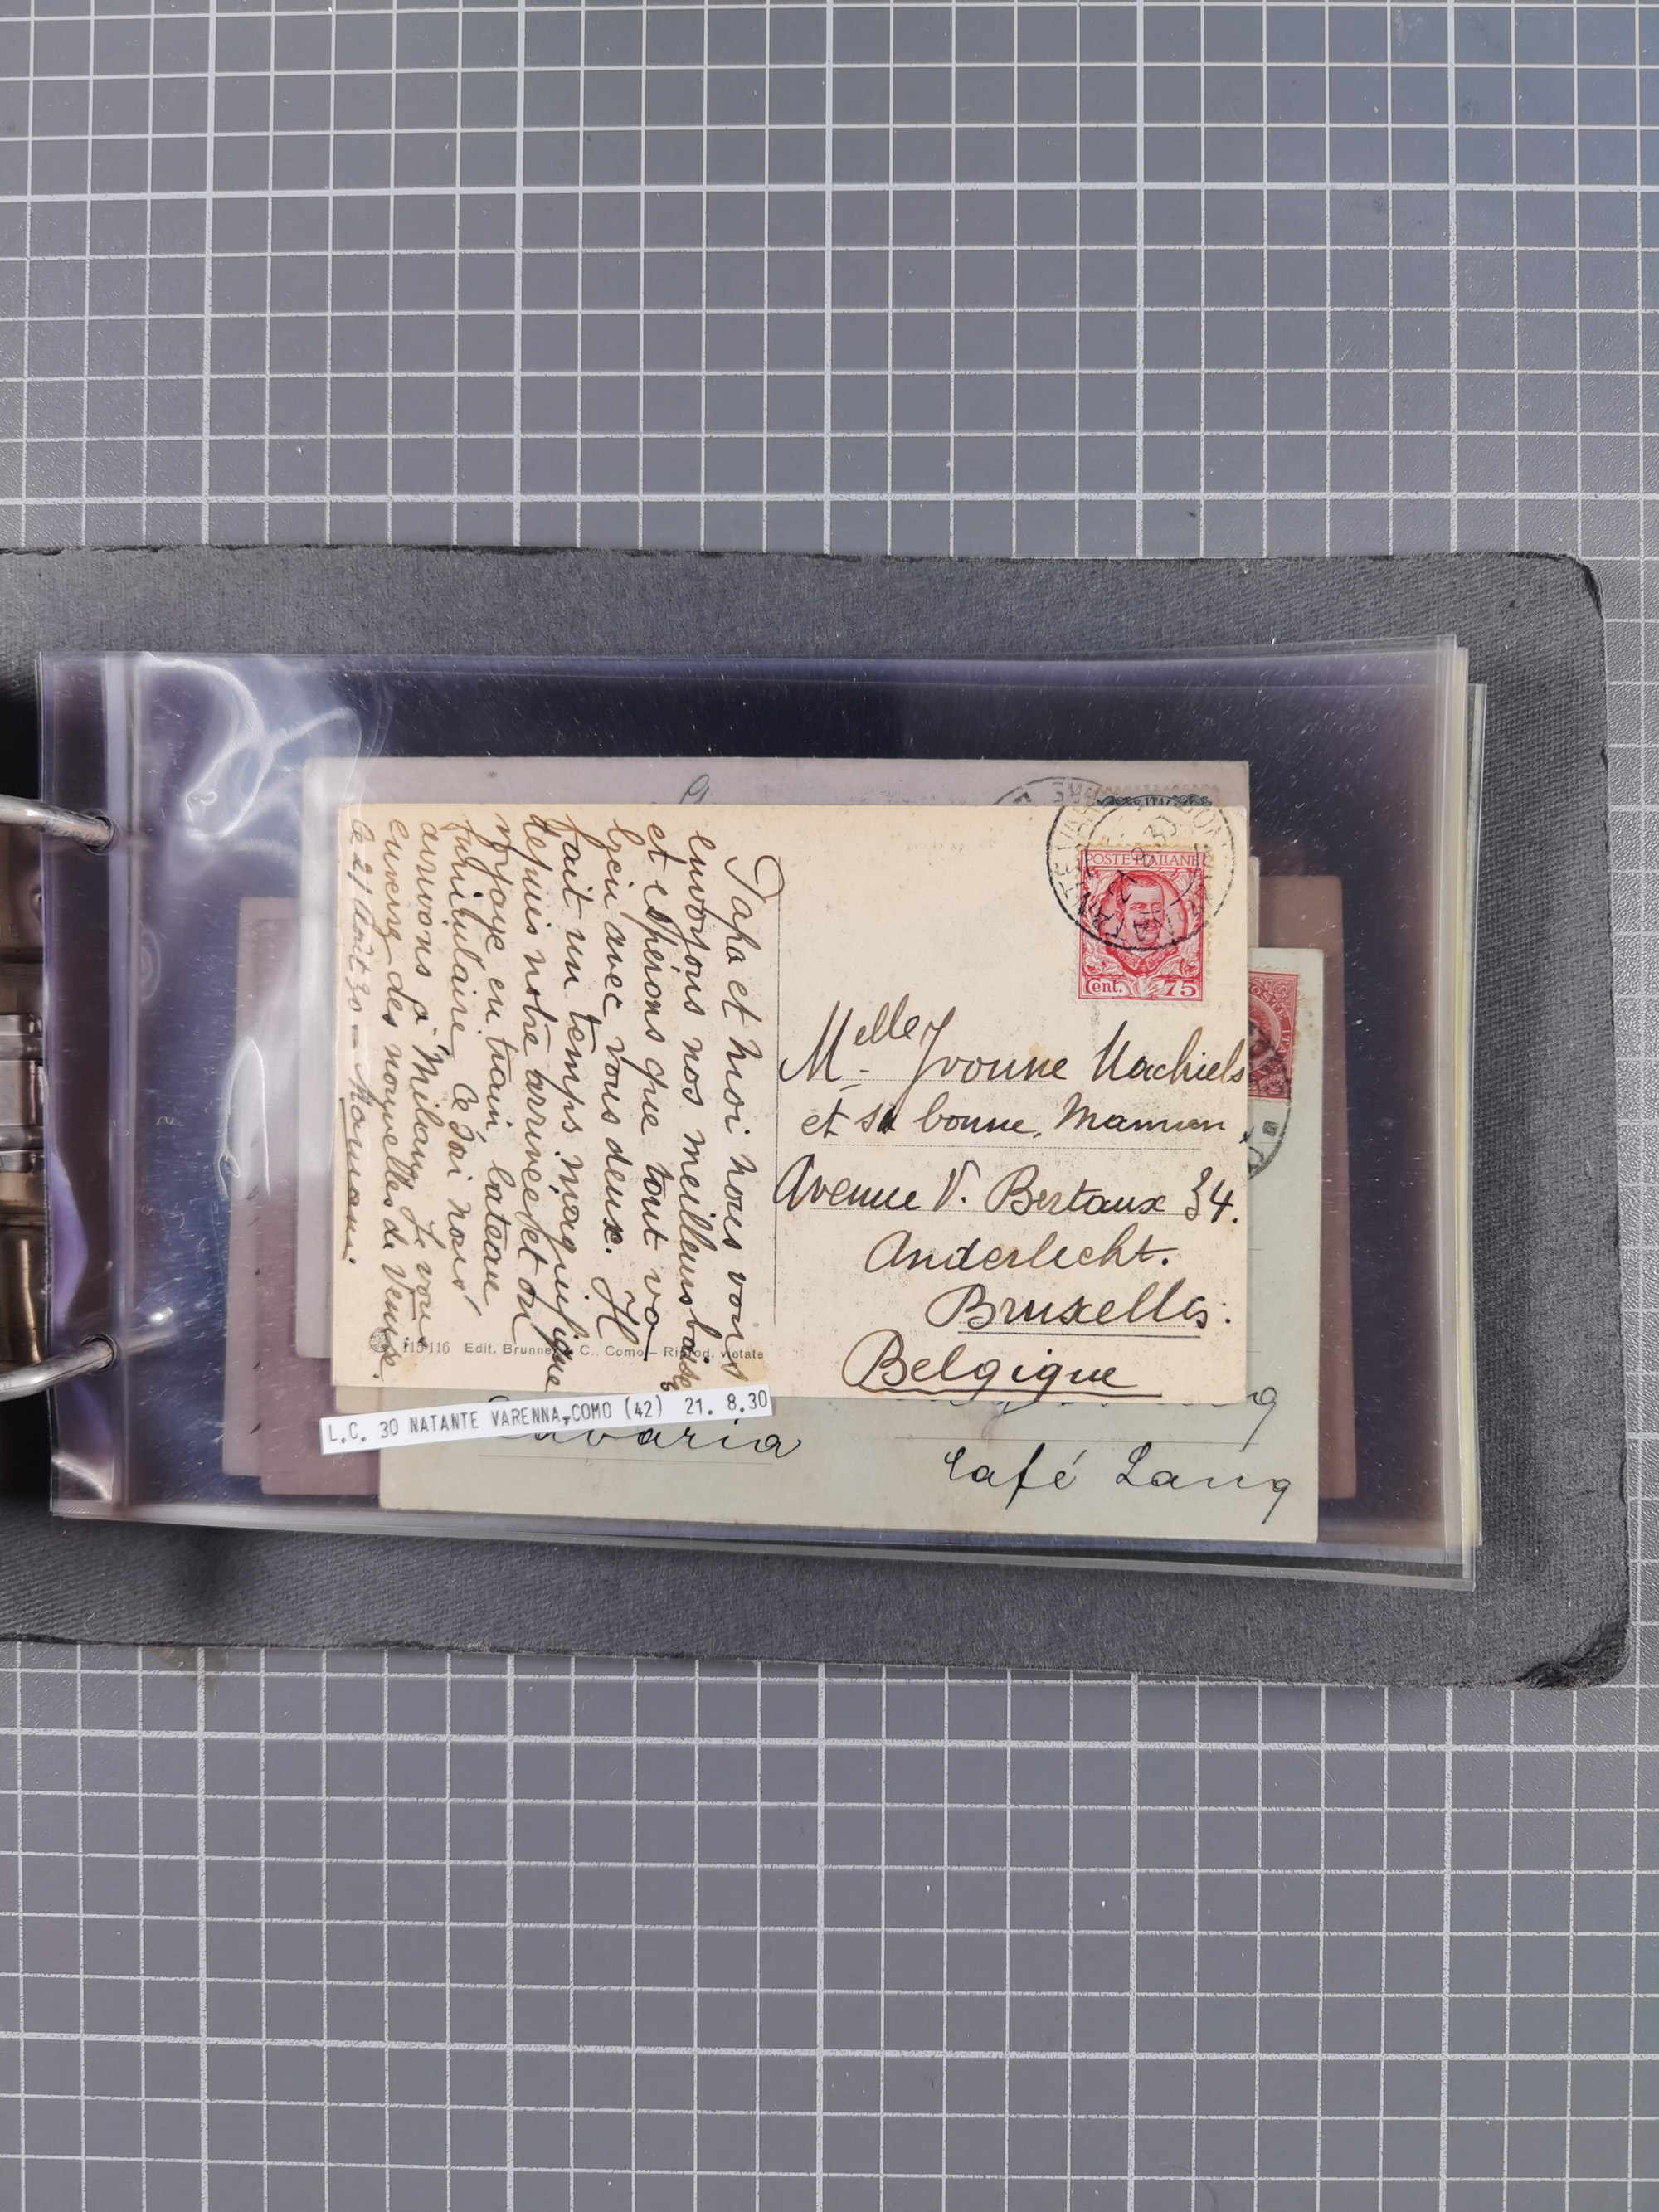 Papa et moi nous vous
envoyons nos meilleurs baisers
et espérons que tout va
bien avec vous deux. Il
fait un temps magnifique
depuis notre arrivée et on
voyage en train, bateau
funiculaire. Ce soir nous
arrivons à Milan. Je vous
enverrai des nouvelles de Venise.
le 21 Août 30 — Maman.
POSTE ITALIANE
Cent. 75
Melle Yvonne Machiels
et sa bonne Maman
Avenue V. Bertaux 34.
Anderlecht.
Bruxelles.
Belgique
115116 Edit. Brunner & C., Como - Riprod. vietata
L.C. 30 NATANTE VARENNA-COMO (42) 21. 8.30
Bavaria
Café Lang